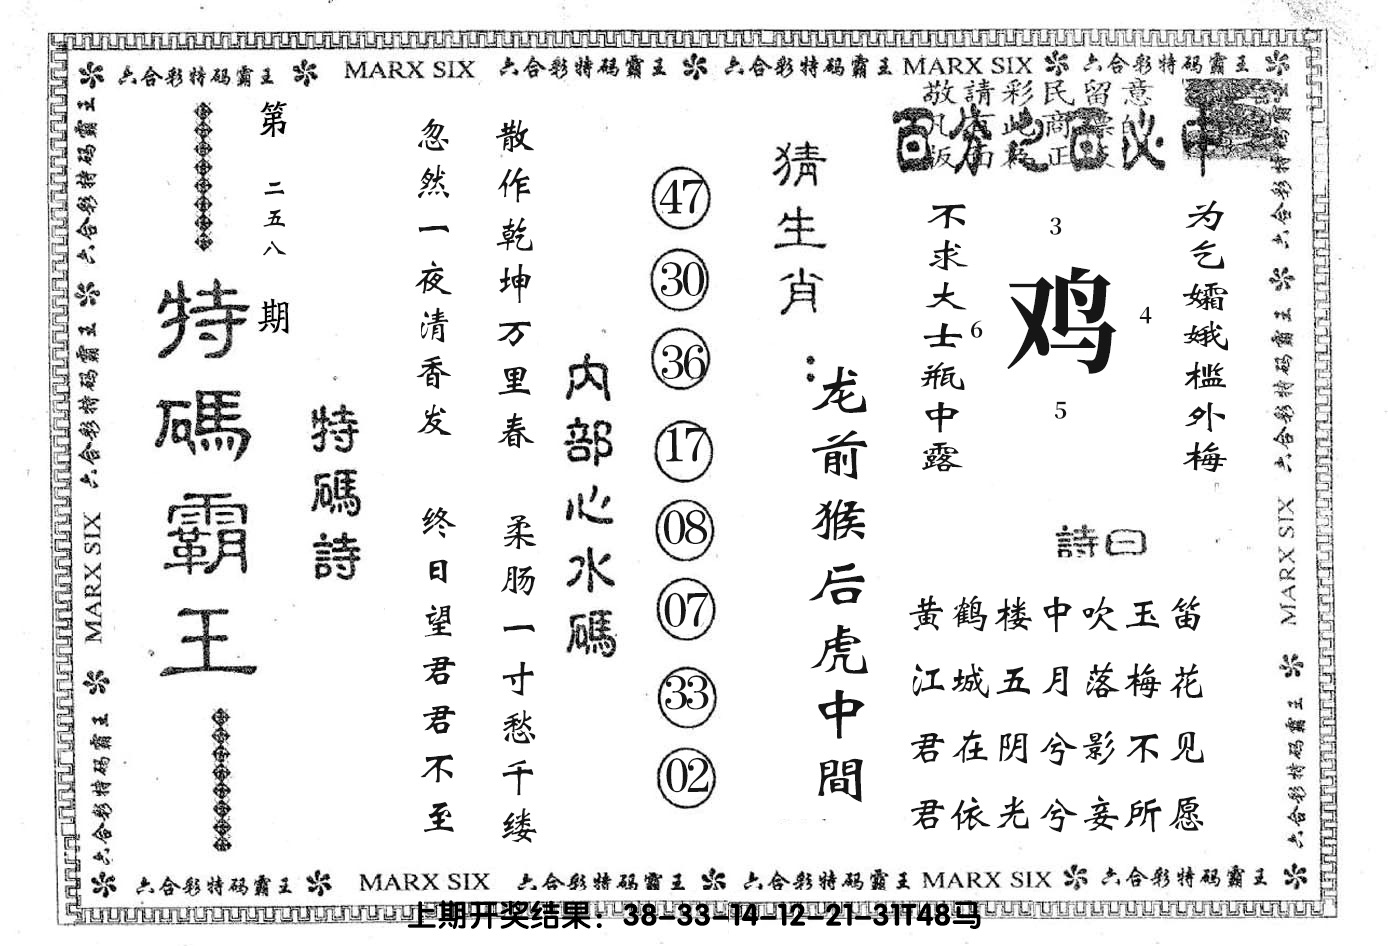 六合彩特码霸王 MARX SIX 六合彩特码霸王 六合彩特码霸王 MARX SIX 六合彩特码霸王
敬請彩民留意
百分之百必中
为乞孀娥槛外梅
3
鸡
4
6
5
不求大士瓶中露
詩曰
黄鹤楼中吹玉笛
江城五月落梅花
君在阴兮影不见
君依光兮妾所愿
猜生肖：
龙前猴后虎中間
47
30
36
17
08
07
33
02
内部心水碼
散作乾坤万里春
柔肠一寸愁千缕
忽然一夜清香发
终日望君君不至
特碼詩
第二五八期
特碼霸王
六合彩特码霸王 六合彩特码霸王 MARX SIX 六合彩特码霸王
六合彩特码霸王 六合彩特码霸王 MARX SIX 六合彩特码霸王
六合彩特码霸王 MARX SIX 六合彩特码霸王 六合彩特码霸王 MARX SIX 六合彩特码霸王
上期开奖结果：38-33-14-12-21-31T48马